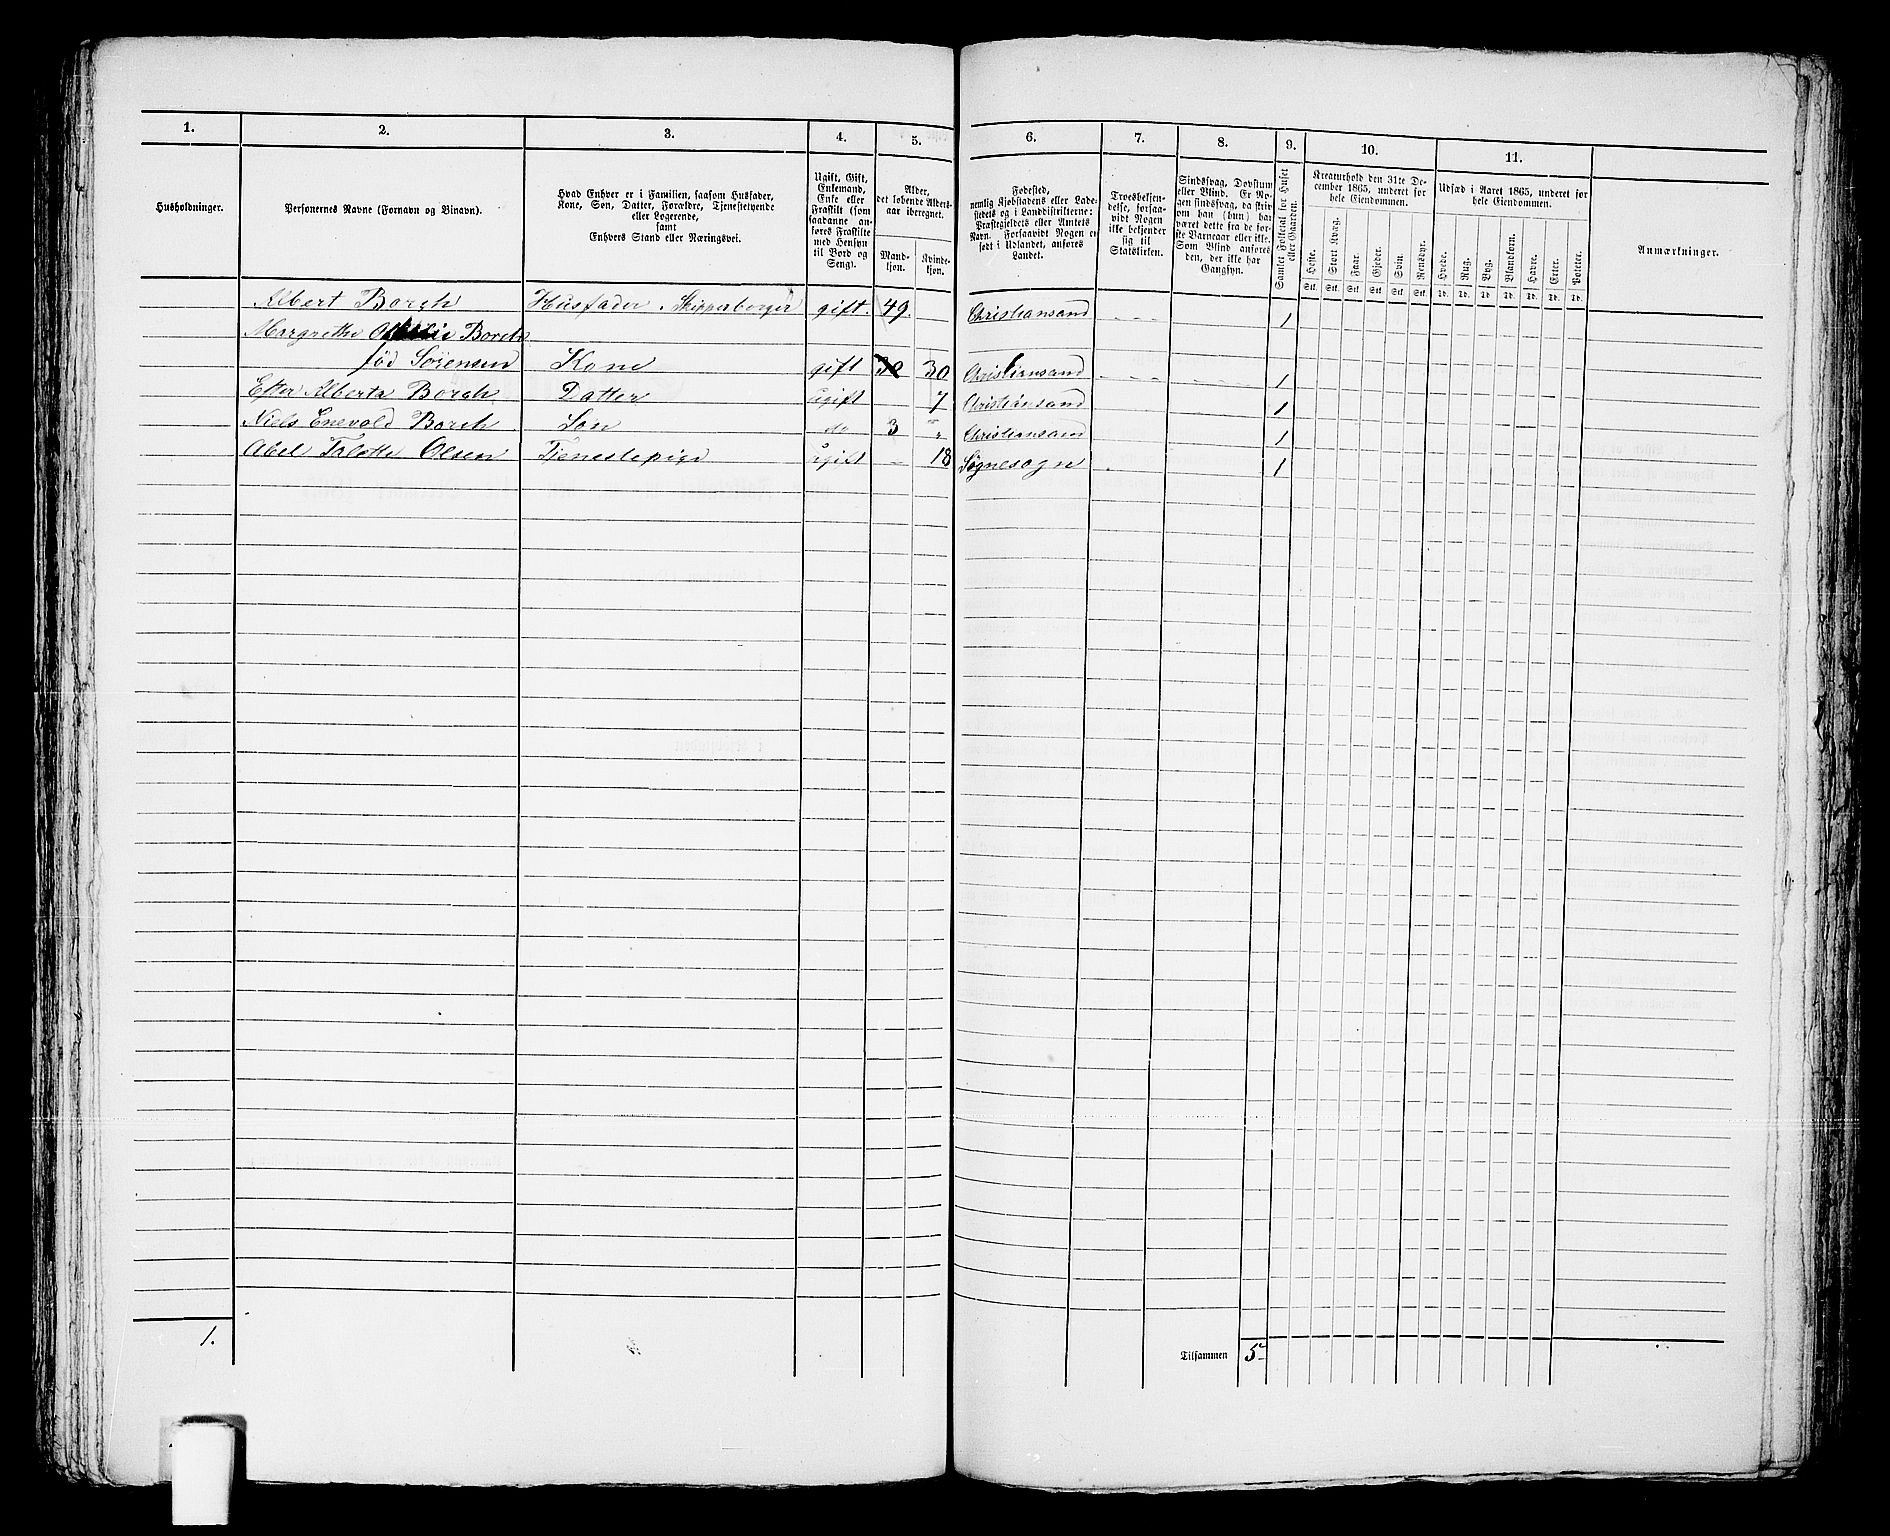 1. 2. 3. 4. 5. 6. 7. 8. 9. 10. 11.
Husholdninger.
Personernes Navne (Fornavn og Binavn).
Hvad Enhver er i Familien, saasom Husfader,
Kone, Søn, Datter, Forældre, Tjenestetyende
eller Logerende,
samt
Enhvers Stand eller Næringsvei.
Ugift, Gift,
Enkemand,
Enke eller
Fraskilt (som
saadanne an-
føres Fraskilte
med Hensyn
til Bord og
Seng).
Alder,
det løbende Alders-
aar iberegnet.
Mand-
kjøn.
Kvinde-
kjøn.
Fødested,
nemlig Kjøbstadens eller Lade-
stedets og i Landdistrikterne:
Præstegjeldets eller Amtets
Navn. Forsaavidt Nogen er
født i Udlandet, anføres
Landet.
Troesbekjen-
delse, forsaa-
vidt Nogen
ikke bekjender
sig til
Statskirken.
Sindssvag, Døvstum
eller Blind. Er No-
gen sindssvag, da skriv
om han (hun) har
været dette fra de før-
ste Barneaar eller ikke.
Som Blind anføres
den, der ikke har
Gangsyn.
Samlet Folketal for Huset
eller Gaarden.
Kreaturhold den 31te De-
cember 1865, underet for
hele Eiendommen.
Heste. Stort Kvæg. Faar. Gjeder. Svin. Rensdyr.
Stk. Stk. Stk. Stk. Stk. Stk.
Udsæd i Aaret 1865, underet for
hele Eiendommen.
Hvede. Rug. Byg. Blandkorn. Havre. Erter. Poteter.
Td. Td. Td. Td. Td. Td. Td.
Anmærkninger.
Albert Borch Husfader, Skipperborger gift. 49. Christiansand 1
Margrethe Borch
fød Sörensen Kone gift 30 Christiansand 1
Alberta Borch Datter ugift 7 Christiansand 1
Niels Enevold Borch Søn do 3 " Christiansand 1
Abel Olsen Tjenestepige ugift 18 Søgnesogn 1
1.
Tilsammen 5